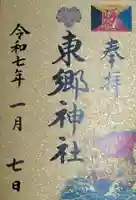 奉拝
東郷神社
令和七年 一月 七日